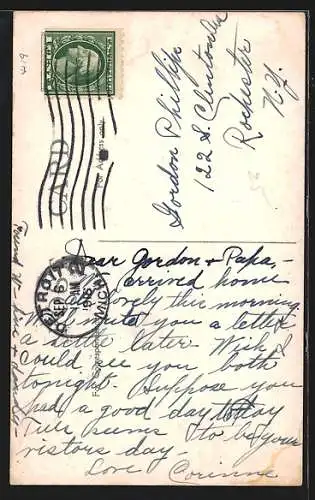 419
CARD
For Address only
Gordon Phillips
122 S. Clinton
Rochester
N.Y.
DETROIT
SEP 6
AM
1916
MICH
Dear Gordon + Papa,-
arrived home
safe lovely this morning.
Will write you a letter
a little later. Wish I
could see you both
tonight. Suppose you
had a good day today
Tues seems to be your
visitors day-
Love Corinne